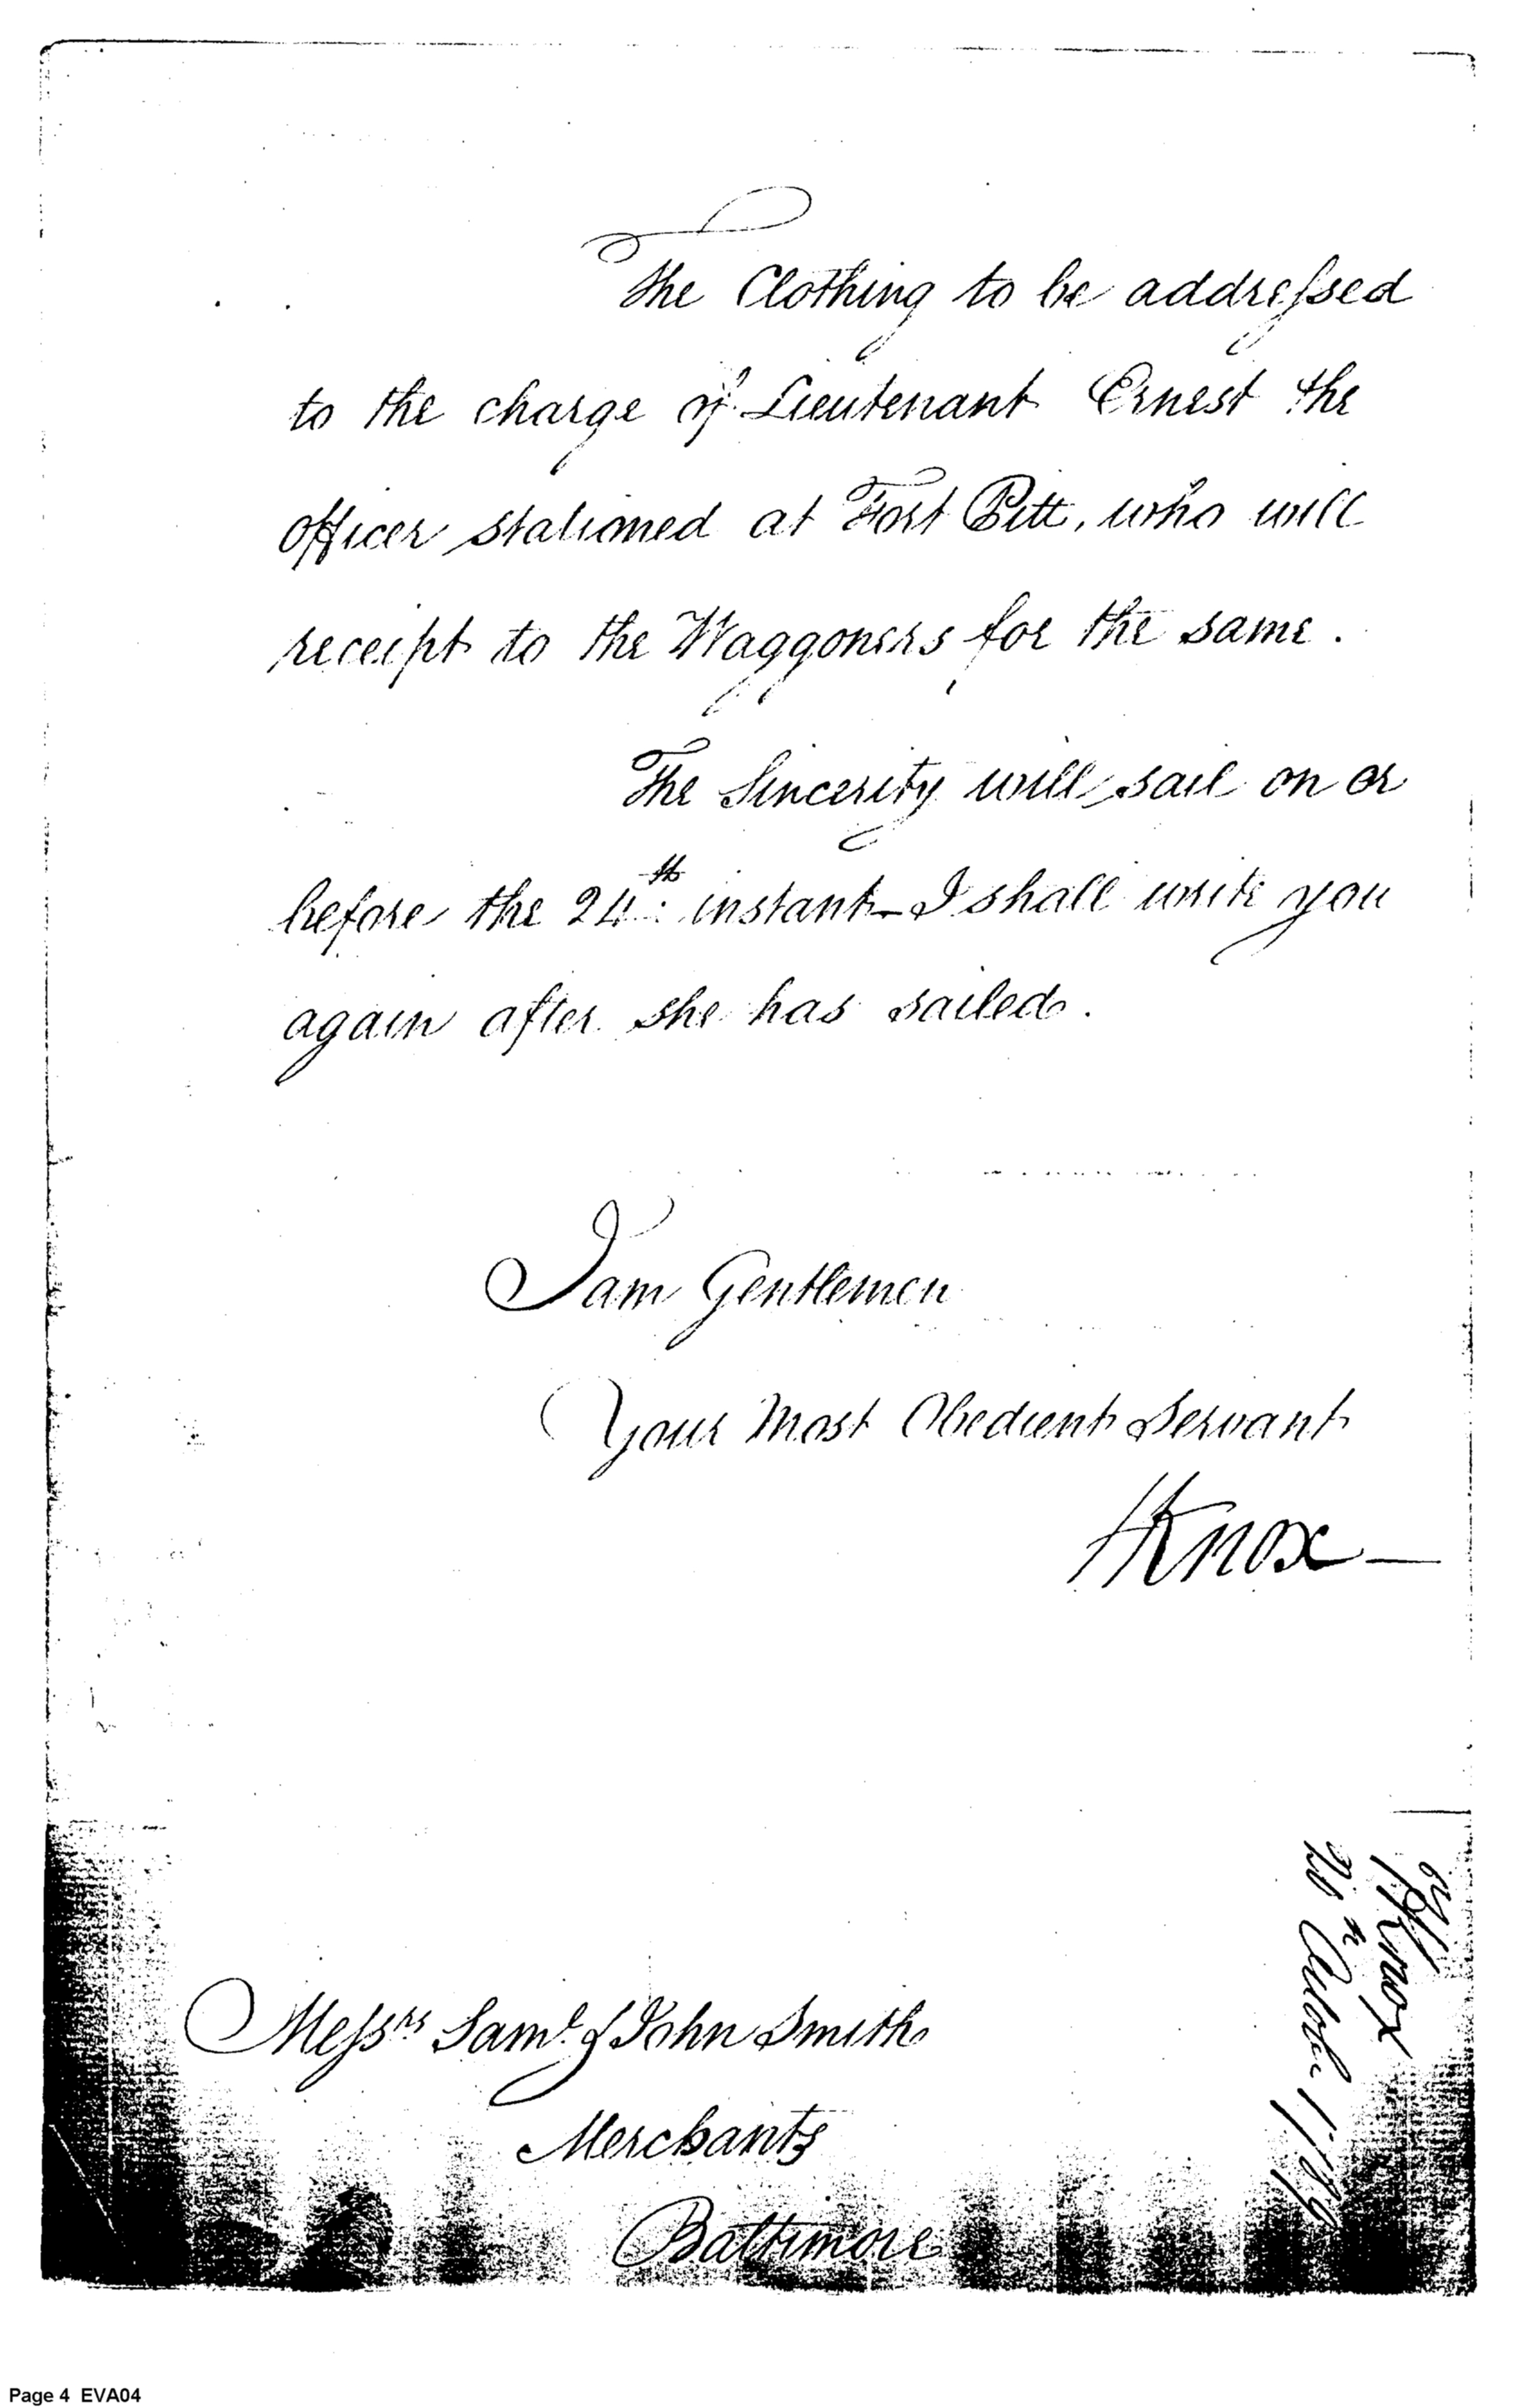 The Clothing to be addressed
to the charge of Lieutenant Ernest the
officer stationed at Fort Pitt, who will
receipt to the Waggoners for the same.
The Sincerity will sail on or
before the 24th instant_ I shall write you
again after she has sailed.
I am Gentlemen
Your Most Obedient Servant
HKnox_
Messrs Saml & John Smith
Merchants
Baltimore
Knox
Page 4 EVA04